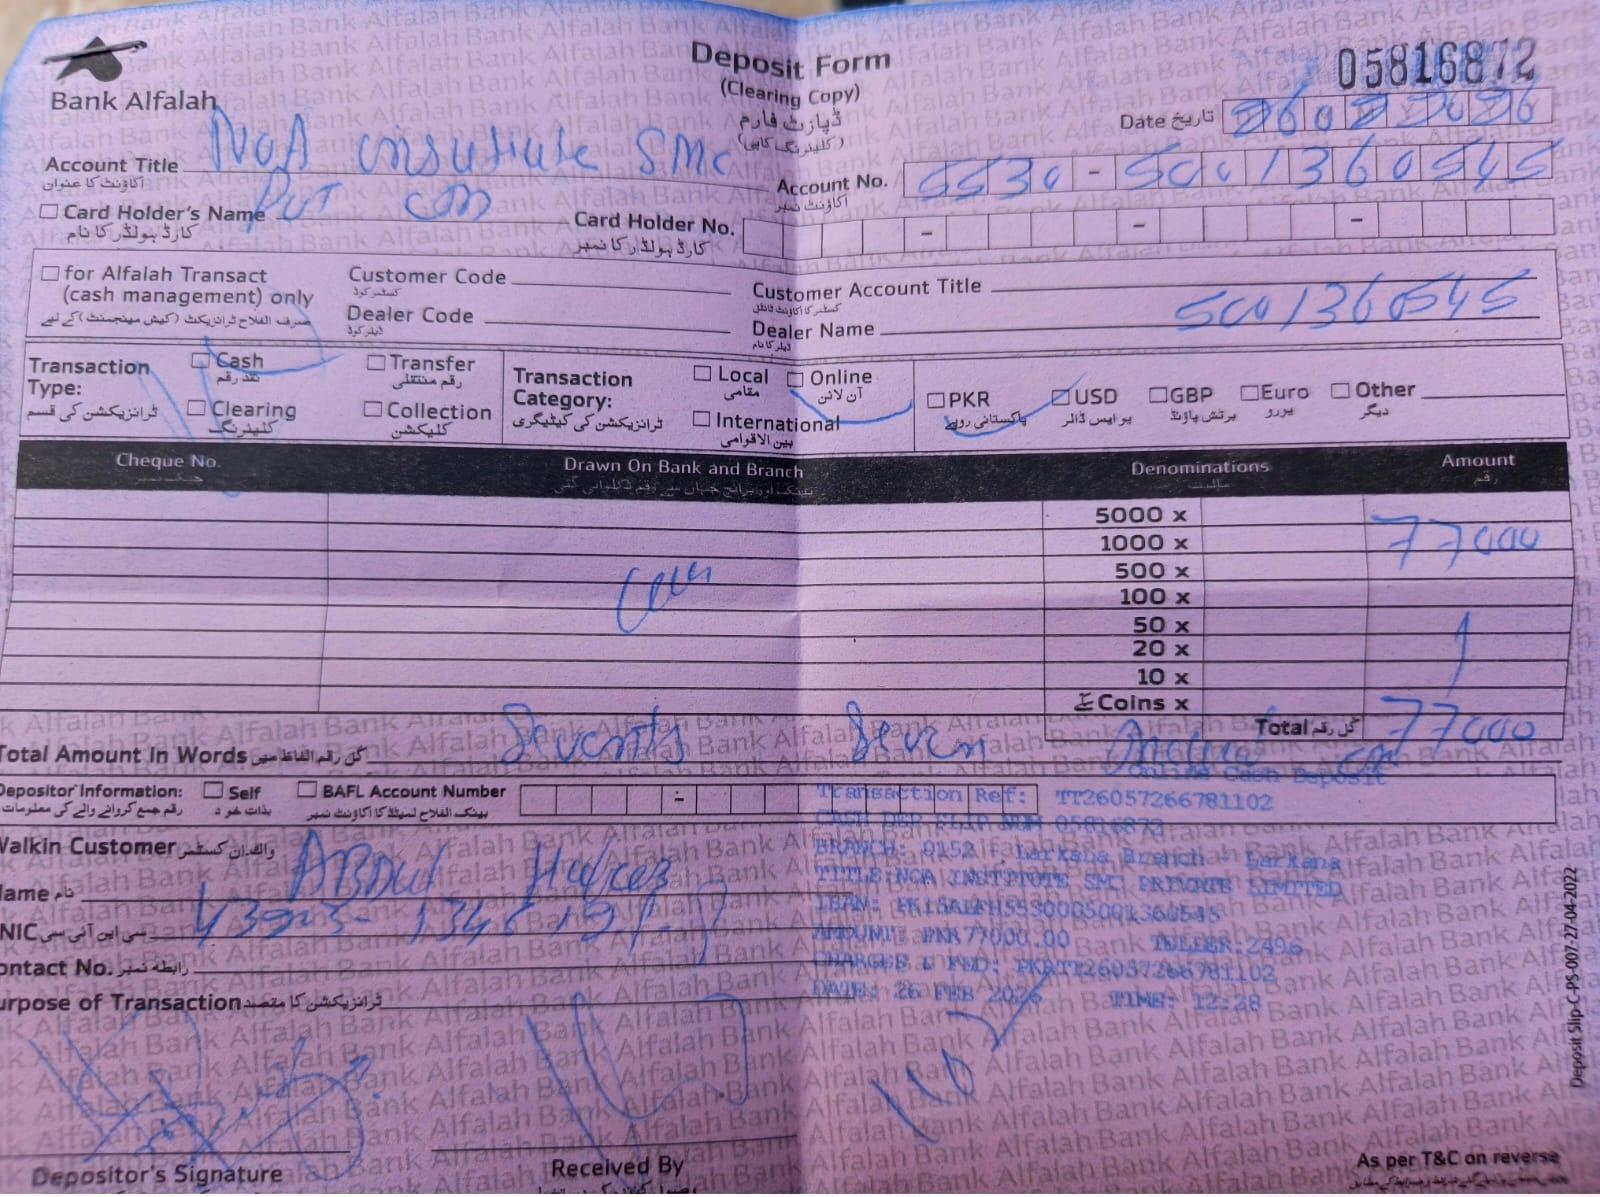 Bank Alfalah
Deposit Form
(Clearing Copy)
ڈپازٹ فارم
(کلیئرنگ کاپی)
05816872
Date تاریخ
Account Title NCA institute SMC
اکاؤنٹ کا عنوان
Pvt
Account No. 5530-5001360545
اکاؤنٹ نمبر
Card Holder's Name
کارڈ ہولڈر کا نام
Card Holder No.
کارڈ ہولڈر کا نمبر
for Alfalah Transact
(cash management) only
صرف الفلاح ٹرانزیکٹ (کیش مینجمنٹ) کے لیے
Customer Code
کسٹمر کوڈ
Dealer Code
ڈیلر کوڈ
Customer Account Title
کسٹمر کا اکاؤنٹ ٹائٹل
5001360545
Dealer Name
ڈیلر کا نام
Transaction Type:
ٹرانزیکشن کی قسم
Cash
نقد رقم
Transfer
رقم منتقلی
Clearing
کلیئرنگ
Collection
کلیکشن
Transaction Category:
ٹرانزیکشن کی کیٹیگری
Local
مقامی
Online
آن لائن
International
بین الاقوامی
PKR
پاکستانی روپے
USD
یو ایس ڈالر
GBP
برٹش پاؤنڈ
Euro
یورو
Other
دیگر
Cheque No.
Drawn On Bank and Branch
Denominations
Amount
رقم
5000 x
1000 x
77000
500 x
Cash
100 x
50 x
20 x
10 x
Coins x
Total کل رقم 77000
Total Amount In Words کل رقم الفاظ میں Seventy Seven
Online Cash Deposit
Depositor Information:
رقم جمع کروانے والے کی معلومات
Self
بذات خود
BAFL Account Number
بینک الفلاح لمیٹڈ کا اکاؤنٹ نمبر
Transaction Ref: TT26057266781102
CASH DEP SLIP NUM 05816872
Walkin Customer واک ان کسٹمر
BRANCH: 0152 Larkana Branch - Larkana
TITLE:NCA INSTITUTE SMC PRIVATE LIMITED
Name نام Abdul
CNIC سی این آئی سی
AMOUNT: PKR77000.00 TELLER:2496
Contact No. رابطہ نمبر
CHARGES & FED: PKRTT26057266781102
Purpose of Transaction ٹرانزیکشن کا مقصد
DATE: 26 FEB 2026 TIME: 12:28
Depositor's Signature
Received By
As per T&C on reverse
Deposit Slip-C-PS-007-27-04-2022